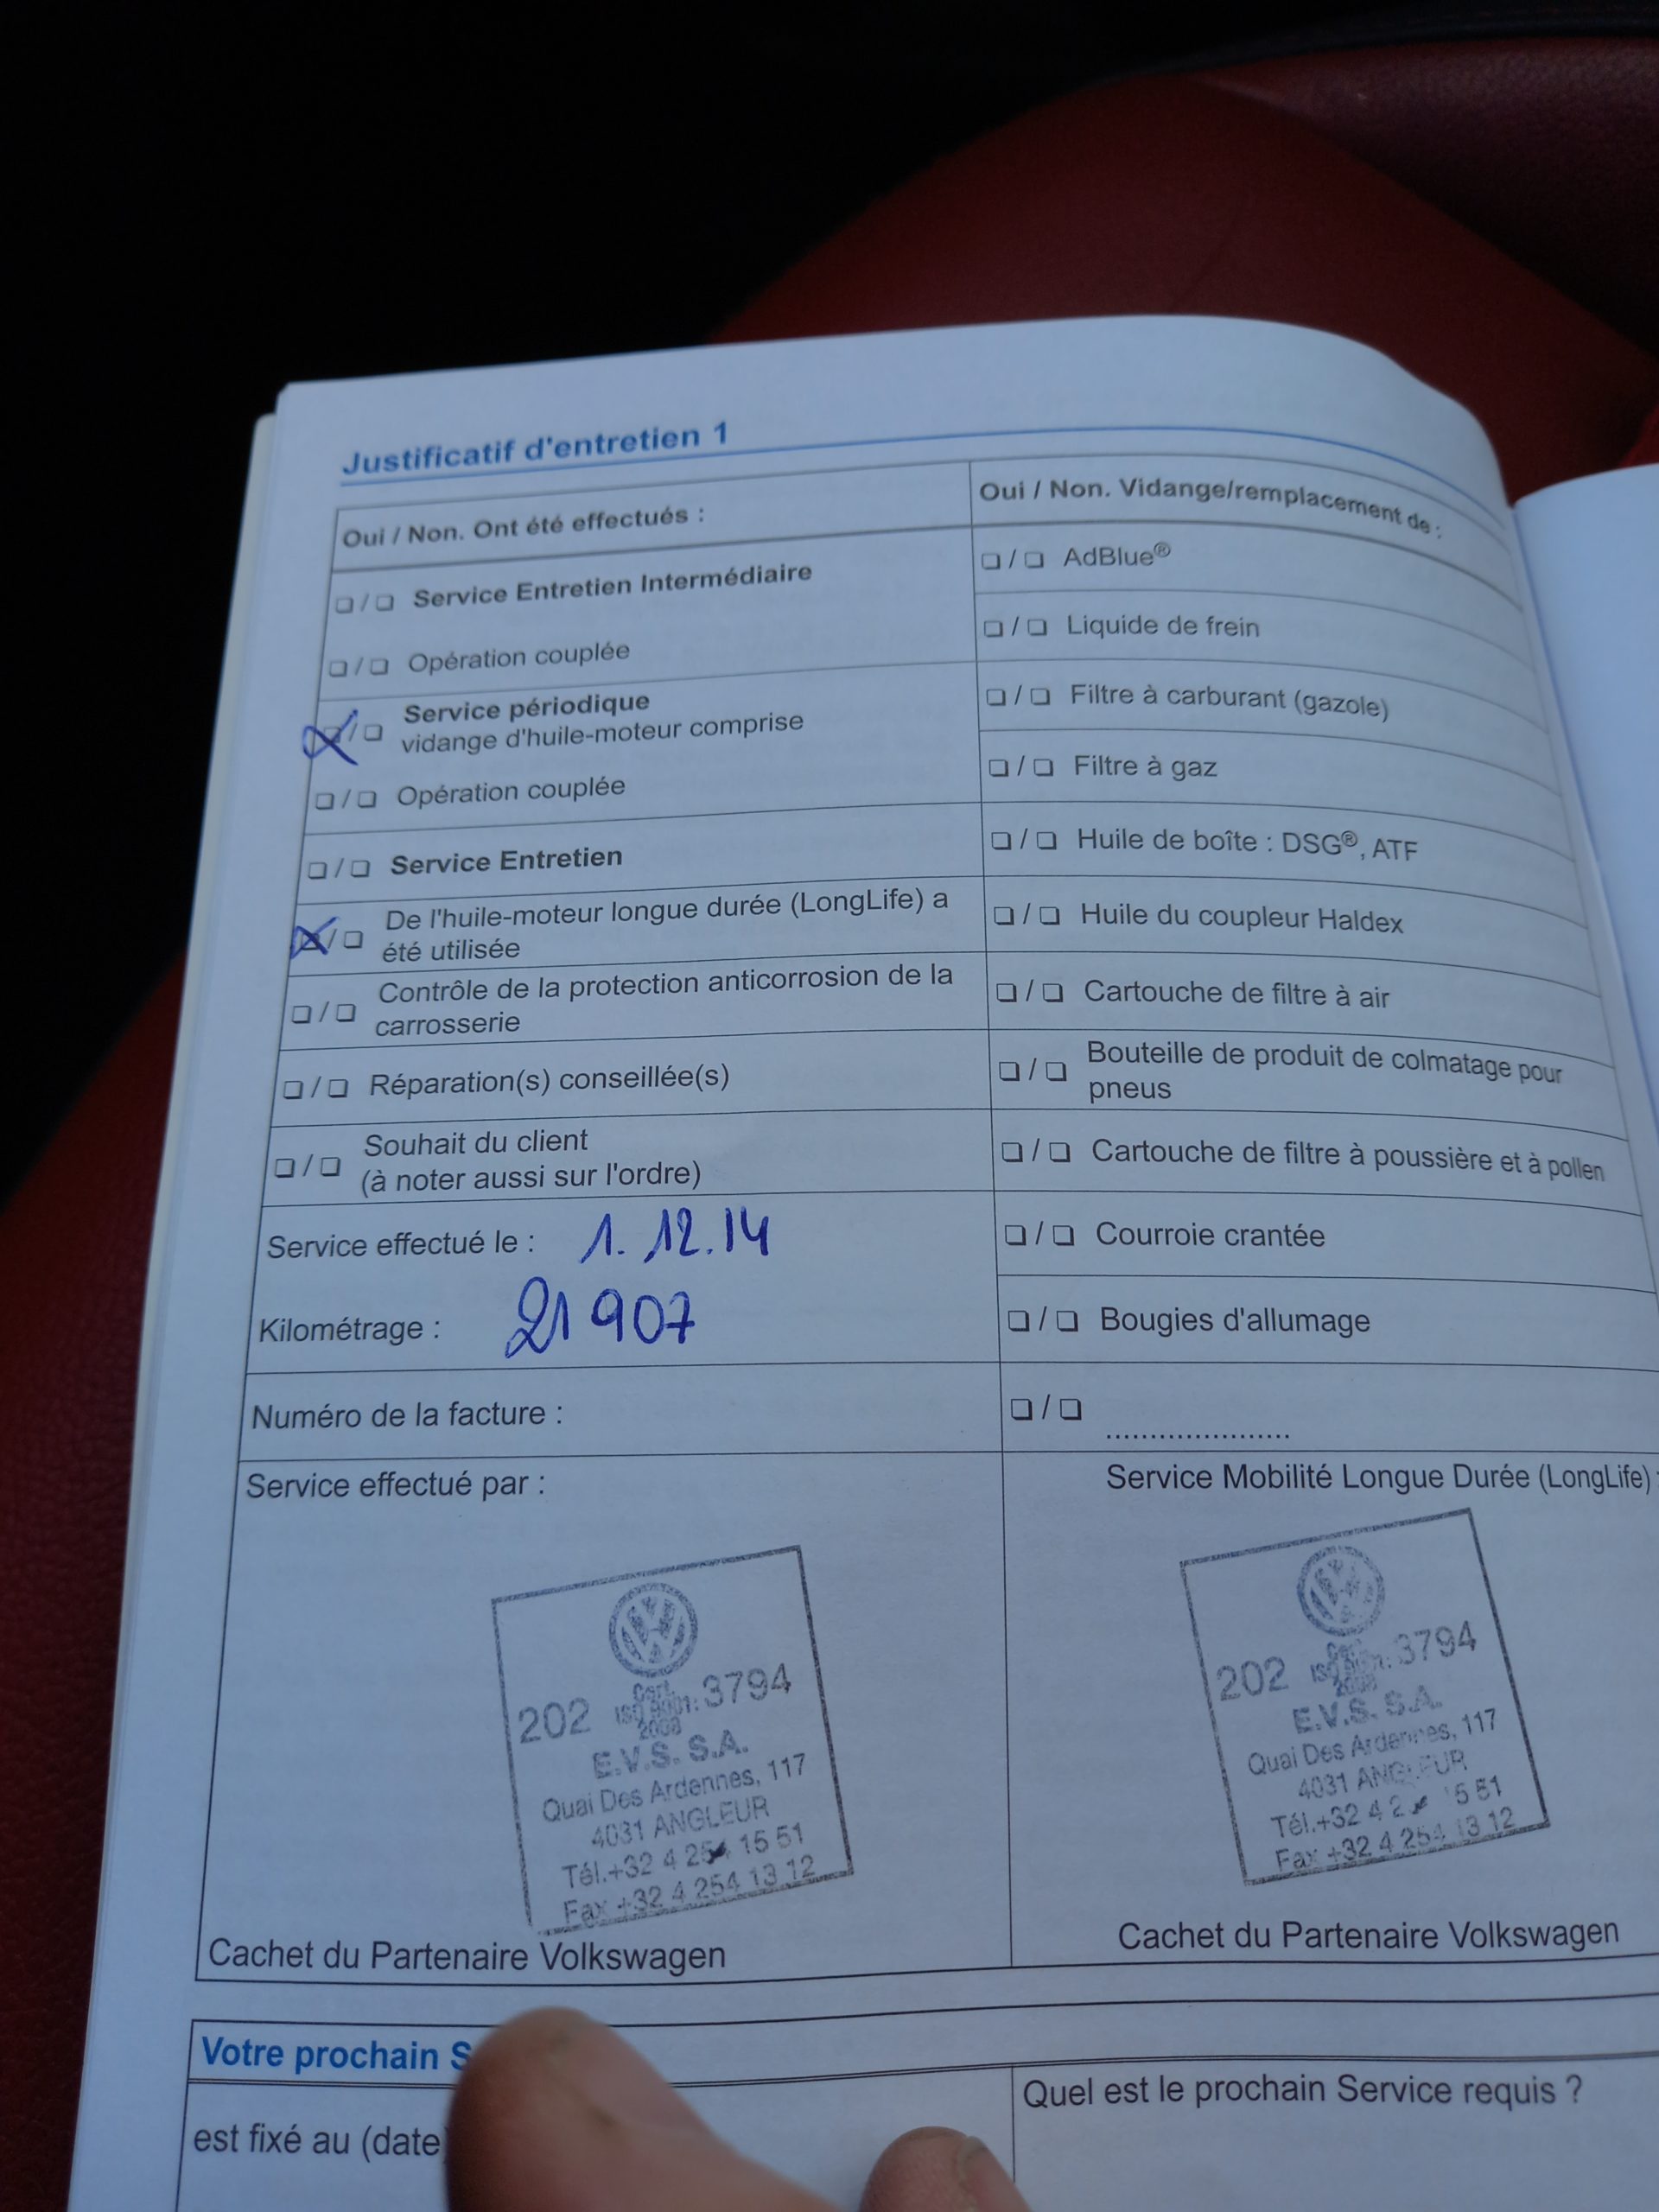 Justificatif d'entretien 1
Oui / Non. Ont été effectués :
❏ / ❏ Service Entretien Intermédiaire
❏ / ❏ Opération couplée
☒ / ❏ Service périodique
vidange d'huile-moteur comprise
❏ / ❏ Opération couplée
❏ / ❏ Service Entretien
☒ / ❏ De l'huile-moteur longue durée (LongLife) a
été utilisée
❏ / ❏ Contrôle de la protection anticorrosion de la
carrosserie
❏ / ❏ Réparation(s) conseillée(s)
❏ / ❏ Souhait du client
(à noter aussi sur l'ordre)
Service effectué le : 1.12.14
Kilométrage : 21 907
Numéro de la facture :
Oui / Non. Vidange/remplacement de :
❏ / ❏ AdBlue®
❏ / ❏ Liquide de frein
❏ / ❏ Filtre à carburant (gazole)
❏ / ❏ Filtre à gaz
❏ / ❏ Huile de boîte : DSG®, ATF
❏ / ❏ Huile du coupleur Haldex
❏ / ❏ Cartouche de filtre à air
❏ / ❏ Bouteille de produit de colmatage pour
pneus
❏ / ❏ Cartouche de filtre à poussière et à pollen
❏ / ❏ Courroie crantée
❏ / ❏ Bougies d'allumage
❏ / ❏ .....................
Service effectué par :
202 Cert. ISO 9001: 2008 3794
E.V.S. S.A.
Quai Des Ardennes, 117
4031 ANGLEUR
Tél.+32 4 254 15 51
Fax +32 4 254 13 12
Cachet du Partenaire Volkswagen
Service Mobilité Longue Durée (LongLife) :
202 3794
E.V.S. S.A.
Quai Des Ardennes, 117
4031 ANGLEUR
Tél.+32 4 5 51
Fax +32 4 254 13 12
Cachet du Partenaire Volkswagen
Votre prochain
est fixé au (date
Quel est le prochain Service requis ?